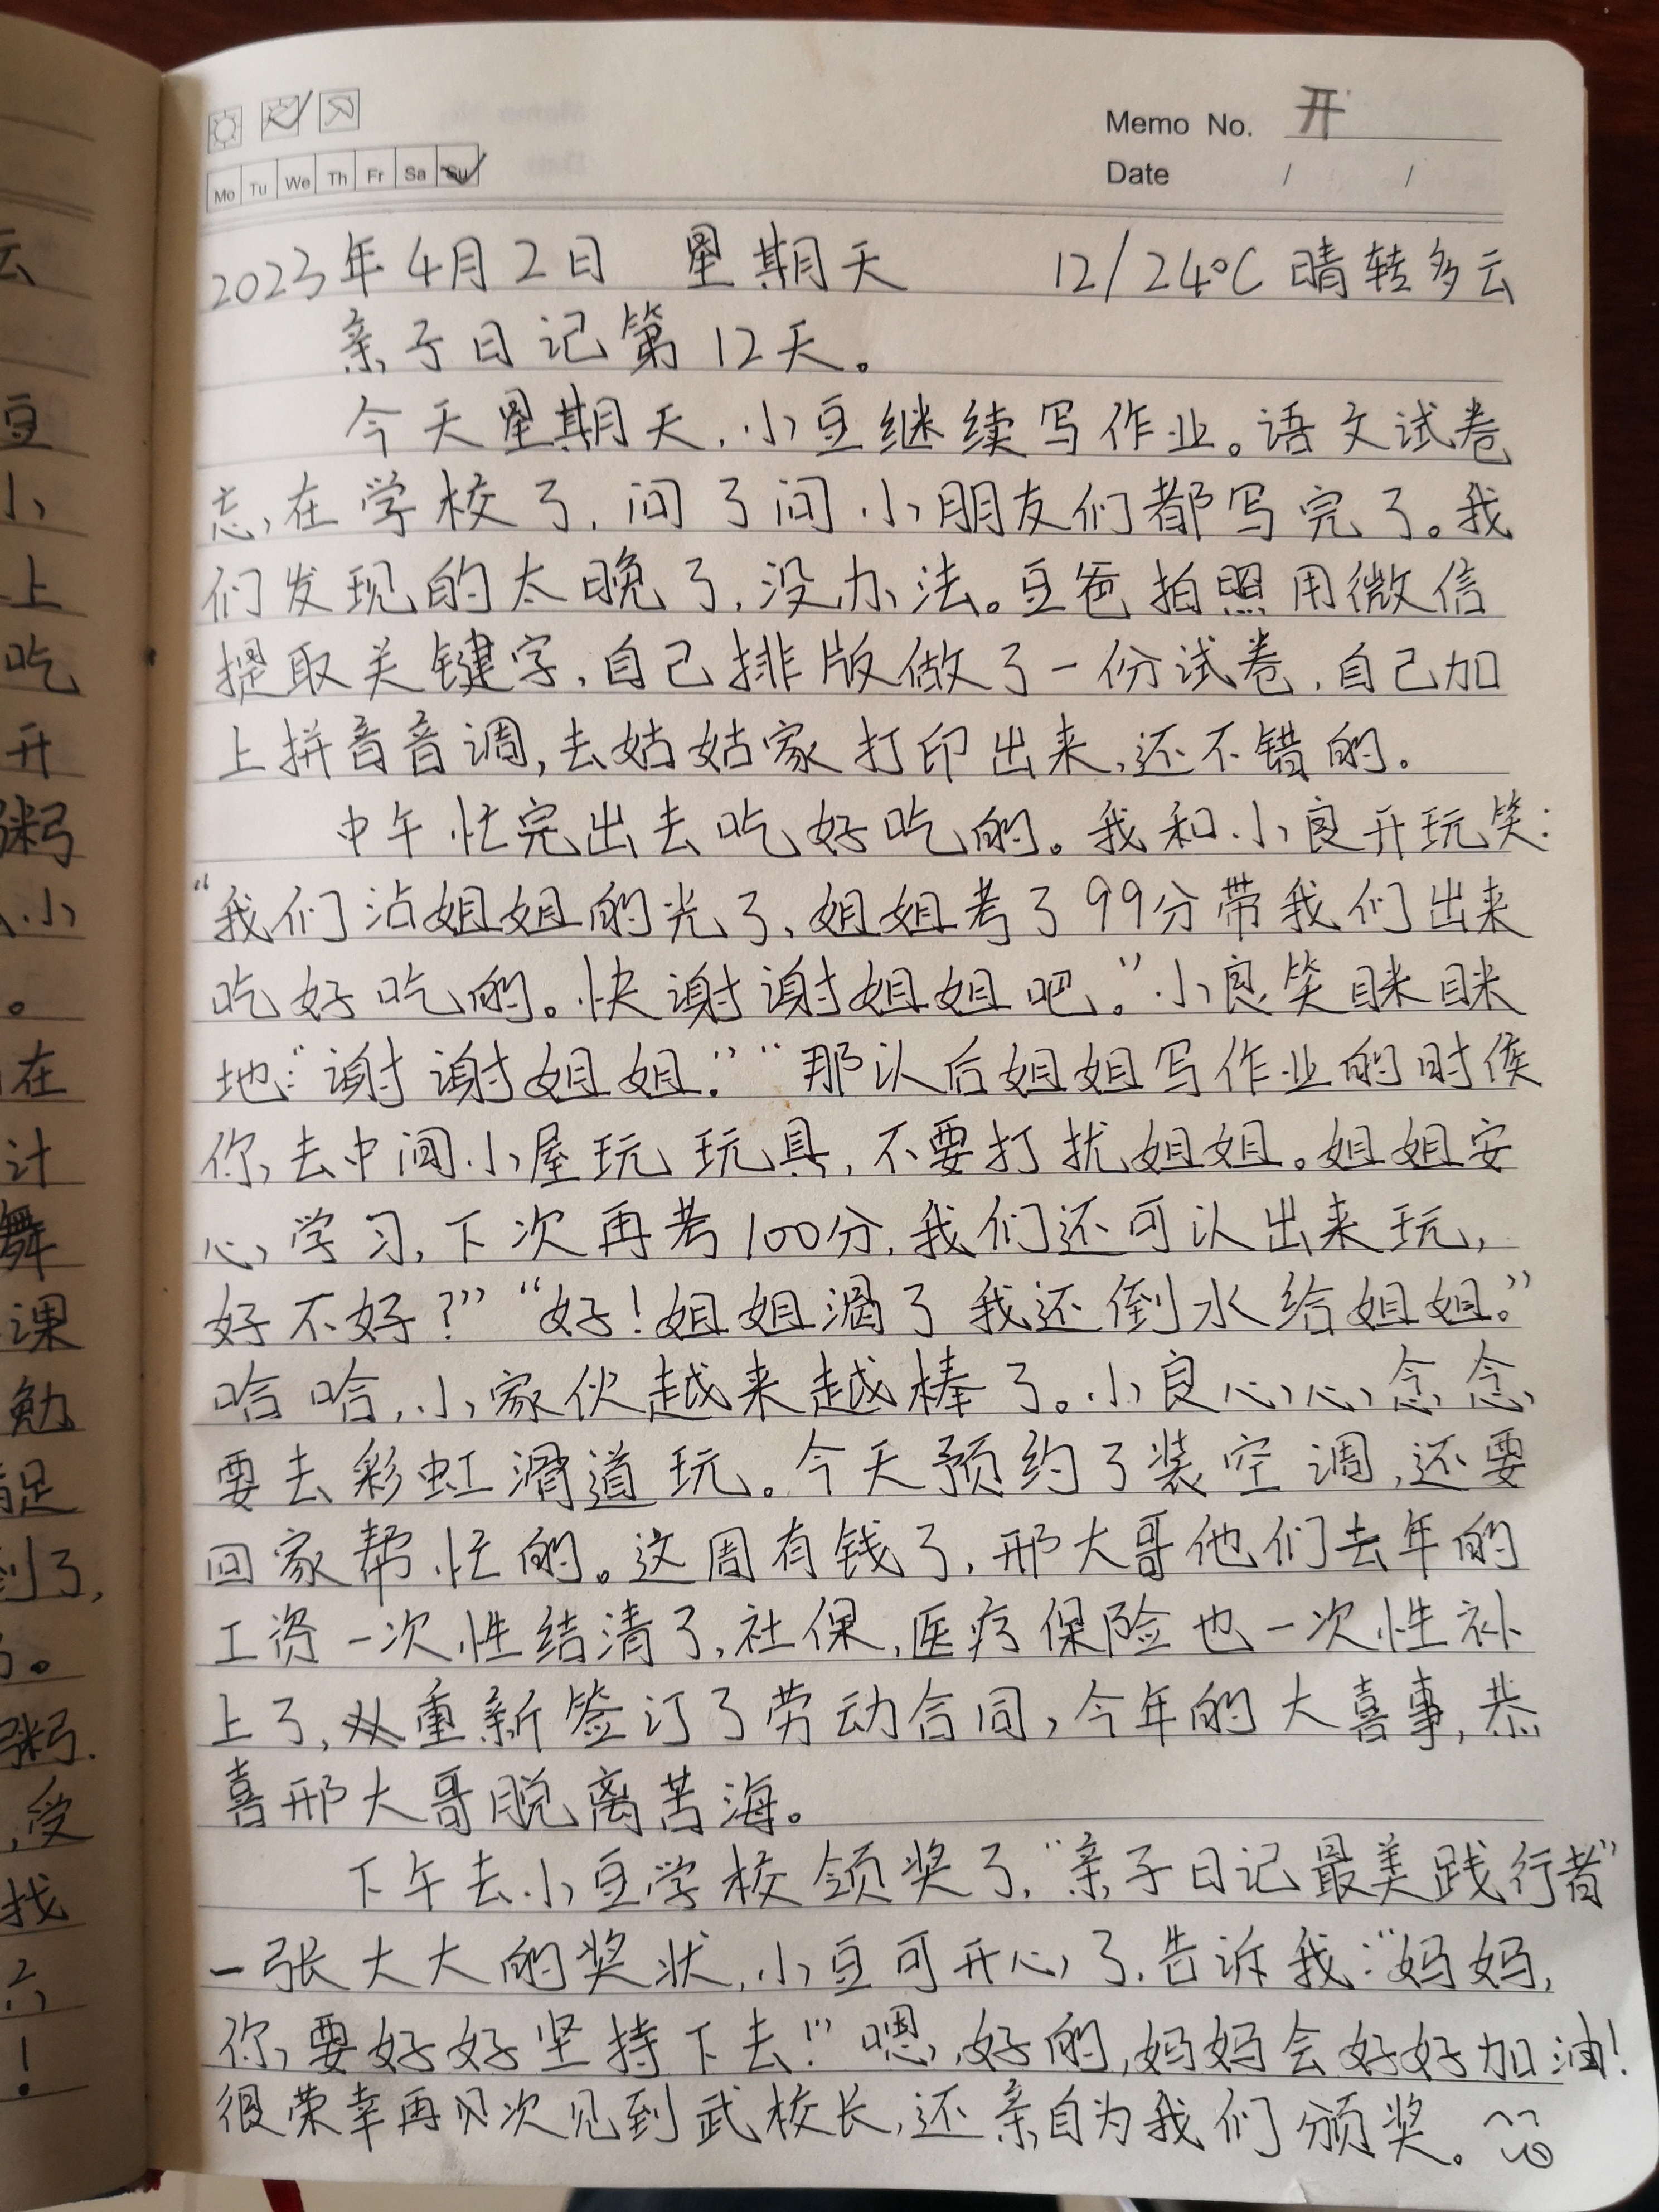 Memo No. 开
Mo Tu We Th Fr Sa Su
Date / /
2023年4月2日 星期天 12/24℃ 晴转多云
亲子日记第12天。
今天星期天,小豆继续写作业。语文试卷
忘在学校了,问了问小朋友们都写完了。我
们发现的太晚了,没办法。豆爸拍照用微信
提取关键字,自己排版做了一份试卷,自己加
上拼音音调,去姑姑家打印出来,还不错的。
中午忙完出去吃好吃的。我和小良开玩笑:
“我们沾姐姐的光了,姐姐考了99分带我们出来
吃好吃的。快谢谢姐姐吧。”小良笑眯眯
地:“谢谢姐姐。”“那以后姐姐写作业的时候
你去中间小屋玩玩具,不要打扰姐姐。姐姐安
心学习,下次再考100分,我们还可以出来玩,
好不好?”“好!姐姐渴了我还倒水给姐姐。”
哈哈,小家伙越来越棒了。小良心心念念
要去彩虹滑道玩。今天预约了装空调,还要
回家帮忙的。这周有钱了,邢大哥他们去年的
工资一次性结清了,社保,医疗保险也一次性补
上了,重新签订了劳动合同,今年的大喜事,恭
喜邢大哥脱离苦海。
下午去小豆学校领奖了,“亲子日记最美践行者”
一张大大的奖状,小豆可开心了,告诉我:“妈妈,
你要好好坚持下去!”嗯,好的,妈妈会好好加油!
很荣幸再次见到武校长,还亲自为我们颁奖。
云
豆
小
上
吃
开
粥
小
。
在
计
舞
课
勉
足
到了,
。
粥.
,受
找
!